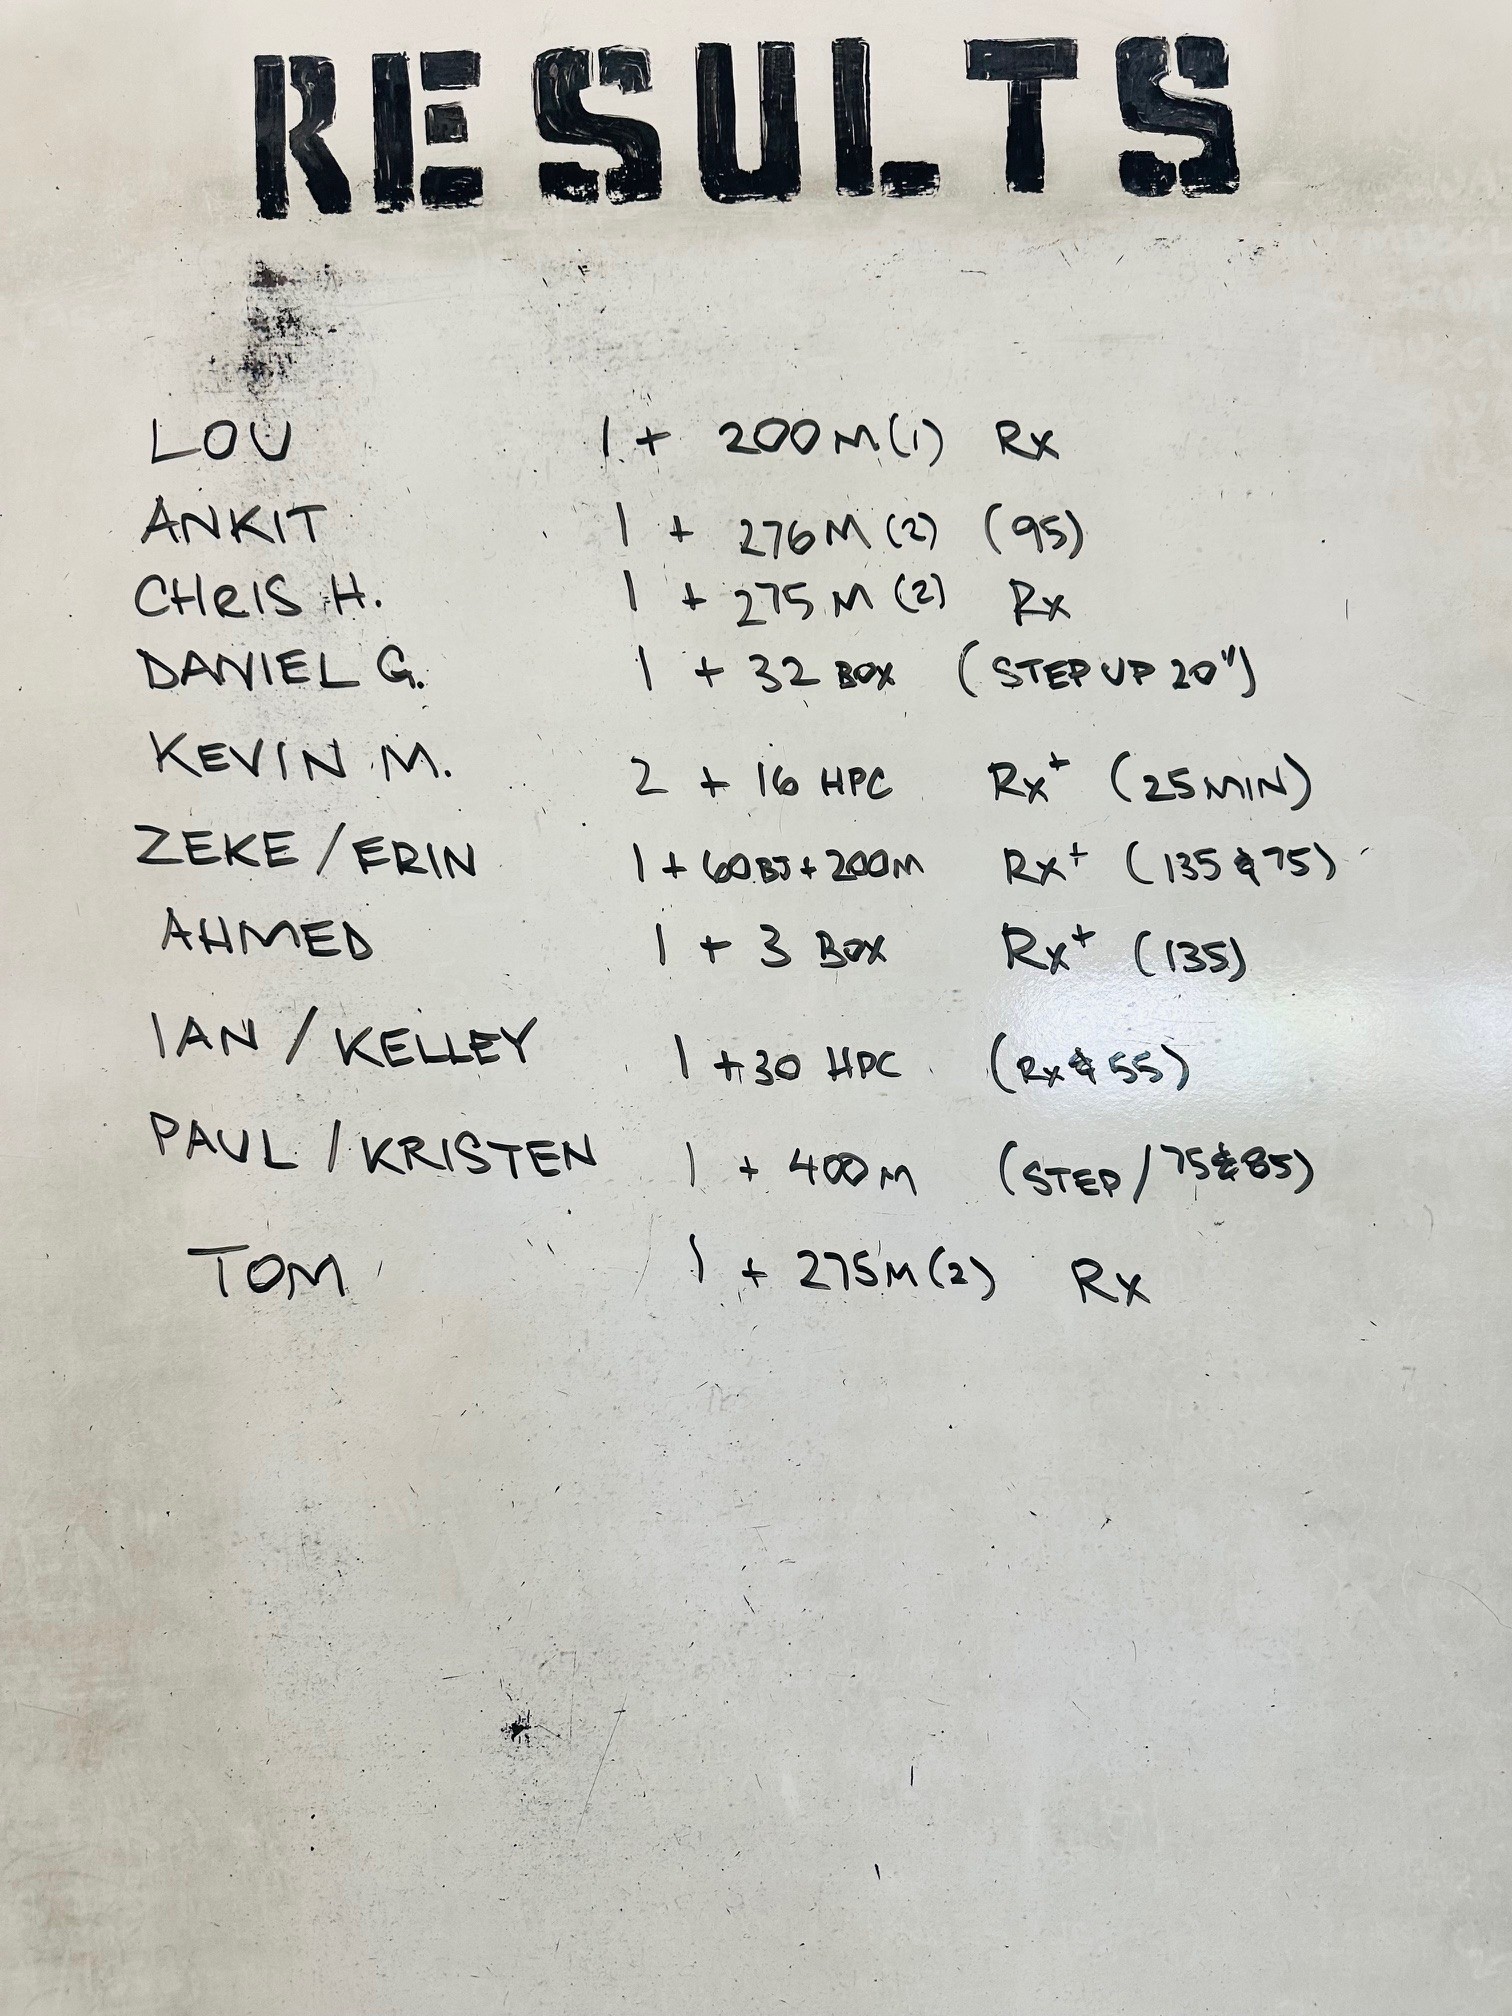 RESULTS
LOU 1 + 200M (1) Rx
ANKIT 1 + 276M (2) (95)
CHRIS H. 1 + 275M (2) Rx
DANIEL G. 1 + 32 BOX (STEP UP 20")
KEVIN M. 2 + 16 HPC Rx+ (25 MIN)
ZEKE / ERIN 1 + 60BJ + 200M Rx+ (135 & 75)
AHMED 1 + 3 BOX Rx+ (135)
IAN / KELLEY 1 + 30 HPC (Rx & 55)
PAUL / KRISTEN 1 + 400M (STEP / 75 & 85)
TOM 1 + 275M (2) Rx